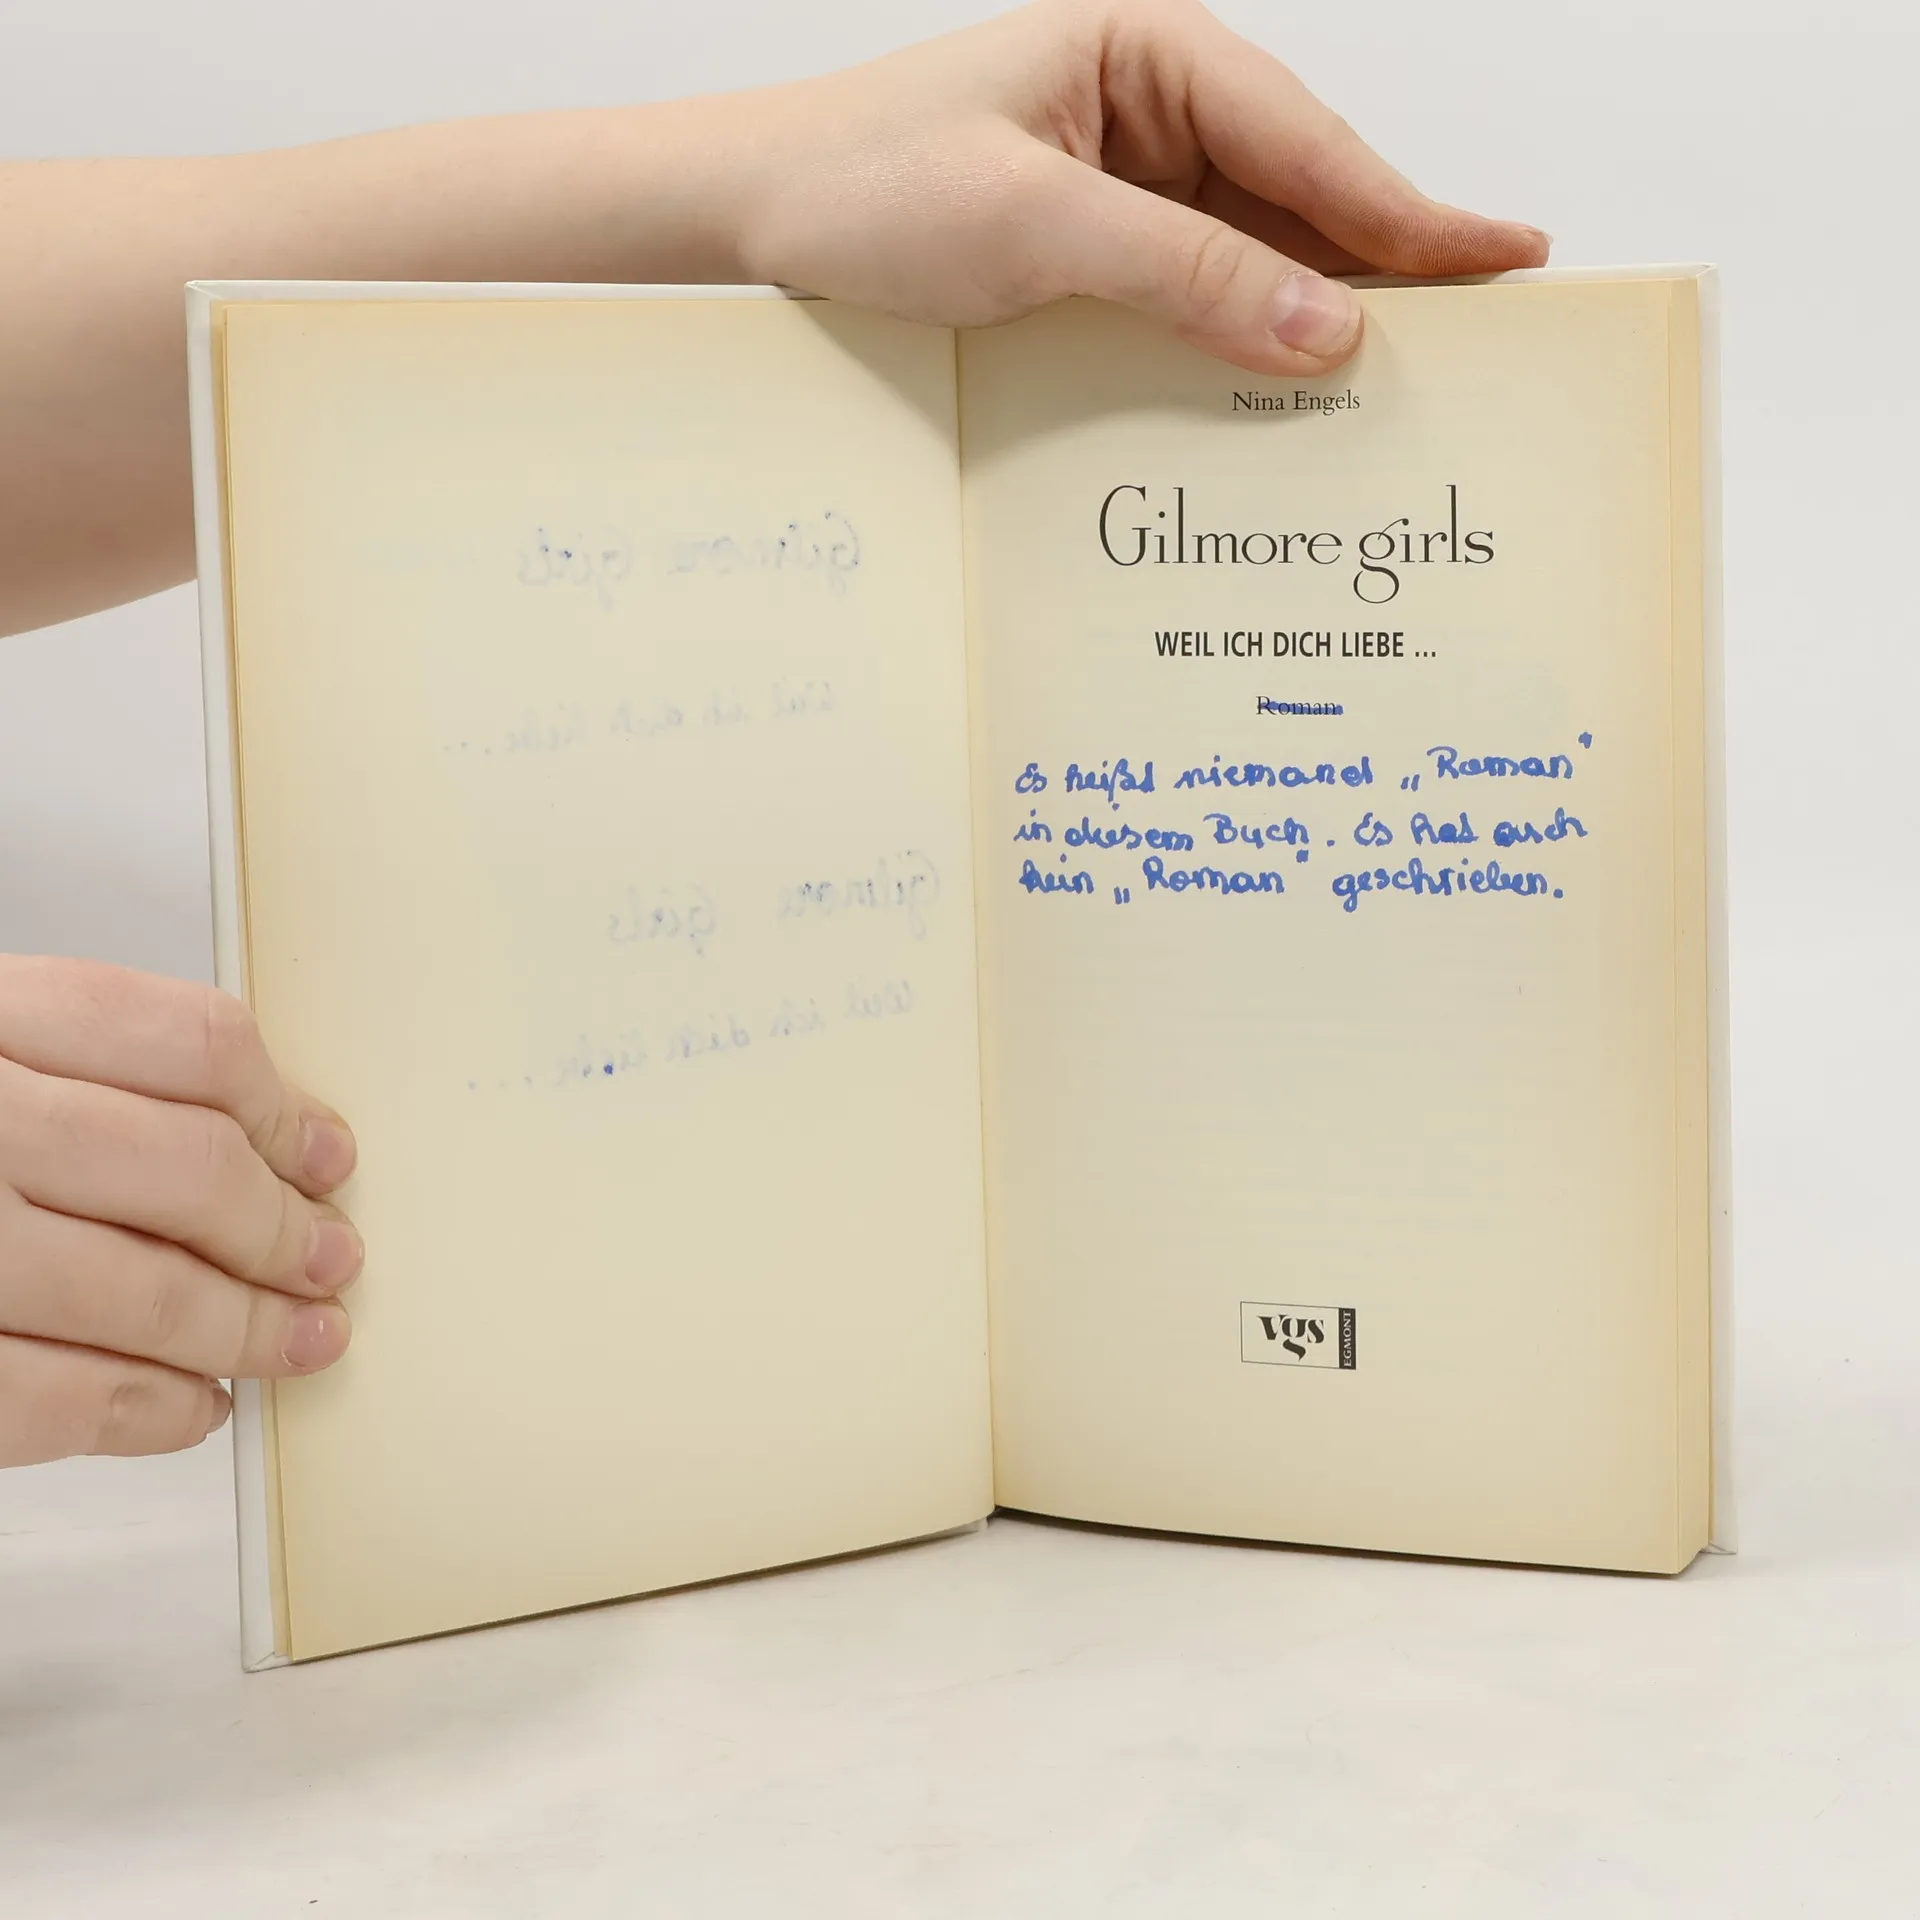 Gilmore Girls
Weil ich dich liebe...
Gilmore Girls
Weil ich dich liebe....
Nina Engels
Gilmore girls
WEIL ICH DICH LIEBE ...
Roman
Es heißt niemand „Roman"
in diesem Buch. Es hat auch
kein „Roman" geschrieben.
vgs
EGMONT